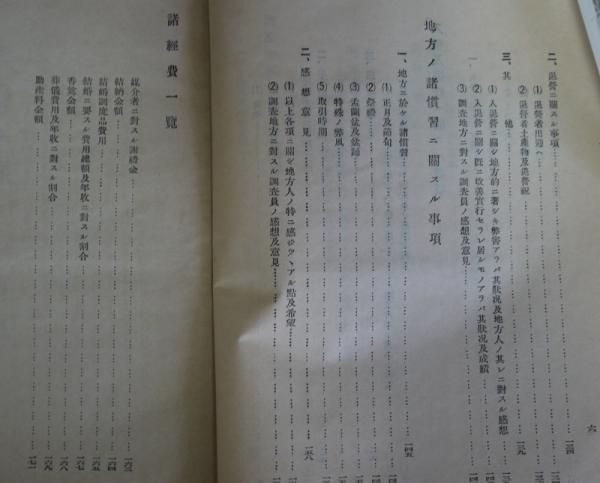 二、退營ニ關スル事項 一三四
⑴ 退營者出迎ヘ
⑵ 退營者土產物及退營祝 一三九
三、其他
⑴ 入退營ニ關シ地方的ニ著シキ弊害アラバ其狀况及地方人ノ其レニ對スル感想
⑵ 入退營ニ關シ既ニ改善實行セラレ居ルモノアラバ其狀况及成績
⑶ 調査地方ニ對スル調査員ノ感想及意見
地方ノ諸慣習ニ關スル事項
一、地方ニ於ケル諸慣習 一四五
⑴ 正月及節句
⑵ 祭禮
⑶ 盂蘭盆及盆踊
⑷ 特殊ノ弊風
⑸ 取引時期
二、感想意見 一五八
⑴ 以上各項ニ關シ地方人ノ特ニ感ジツヽアル點及希望
⑵ 調査地方ニ對スル調査員ノ感想及意見
六
諸經費一覽
媒介者ニ對スル謝禮金 一六三
結納金額 一六四
結婚調度品費用 一六五
結婚ニ要スル費用總額及年收ニ對スル割合 一六七
香奠金額 一六八
葬儀費用及年收ニ對スル割合 一六九
助產料金額 一七一